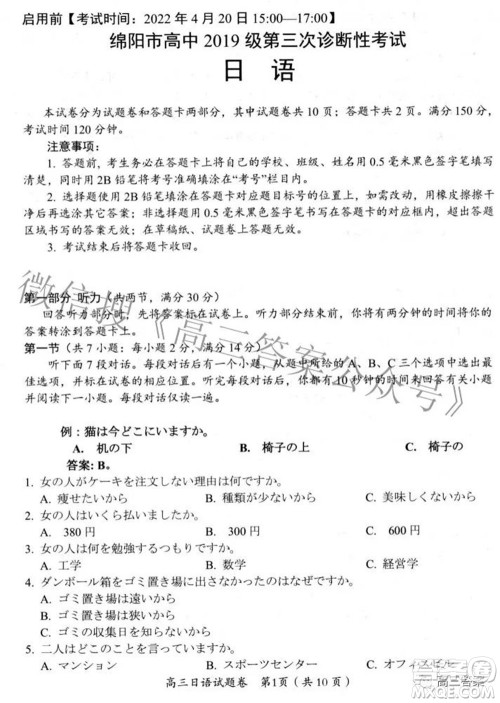 启用前【考试时间：2022 年 4 月 20 日 15:00—17:00】
绵阳市高中 2019 级第三次诊断性考试
日 语
本试卷分为试题卷和答题卡两部分，其中试题卷共 10 页；答题卡共 2 页。满分 150 分，
考试时间 120 分钟。
注意事项：
1. 答题前，考生务必在答题卡上将自己的学校、班级、姓名用 0.5 毫米黑色签字笔填写
清楚，同时用 2B 铅笔将考号准确填涂在“考号”栏目内。
2. 选择题使用 2B 铅笔填涂在答题卡对应题目标号的位置上，如需改动，用橡皮擦擦干
净后再选涂其它答案；非选择题用 0.5 毫米黑色签字笔书写在答题卡的对应框内，超出答题
区域书写的答案无效；在草稿纸、试题卷上答题无效。
3. 考试结束后将答题卡收回。
第一部分 听力（共两节，满分 30 分）
回答听力部分时，请先将答案标在试卷上。听力部分结束前，你将有两分钟的时间将你的
答案转涂到答题卡上。
第一节（共 7 小题：每小题 2 分，满分 14 分）
听下面 7 段对话。每段对话后有一个小题，从题中所给的 A、B、C 三个选项中选出最佳选
项，并标在试卷的相应位置。听完每段对话后，你都有 10 秒钟的时间回答有关小题和阅读下
一小题。每段对话仅读一遍。
例：猫は今どこにいますか。
A. 机の下 B. 椅子の上 C. 椅子の
答案: B。
1. 女の人がケーキを注文しない理由は何ですか。
A. 痩せたいから B. 種類が少ないから C. 美味しくないから
2. 女の人はいくら払いましたか。
A. 380 円 B. 300 円 C. 600 円
3. 女の人は何を勉強するつもりですか。
A. 工学 B. 数学 C. 経営学
4. ダンボール箱をゴミ置き場に出さなかったのはどうしてですか。
A. ゴミ置き場は遠いから
B. ゴミ置き場は汚いから
C. ゴミの収集日を知らないから
5. 二人はこれからどこに行きますか。
A. マンション B. スポーツセンター C. オフィスビル
高三日语试题卷 第1页（共 10 页）
微信搜《高三答案公众号》
高三答案